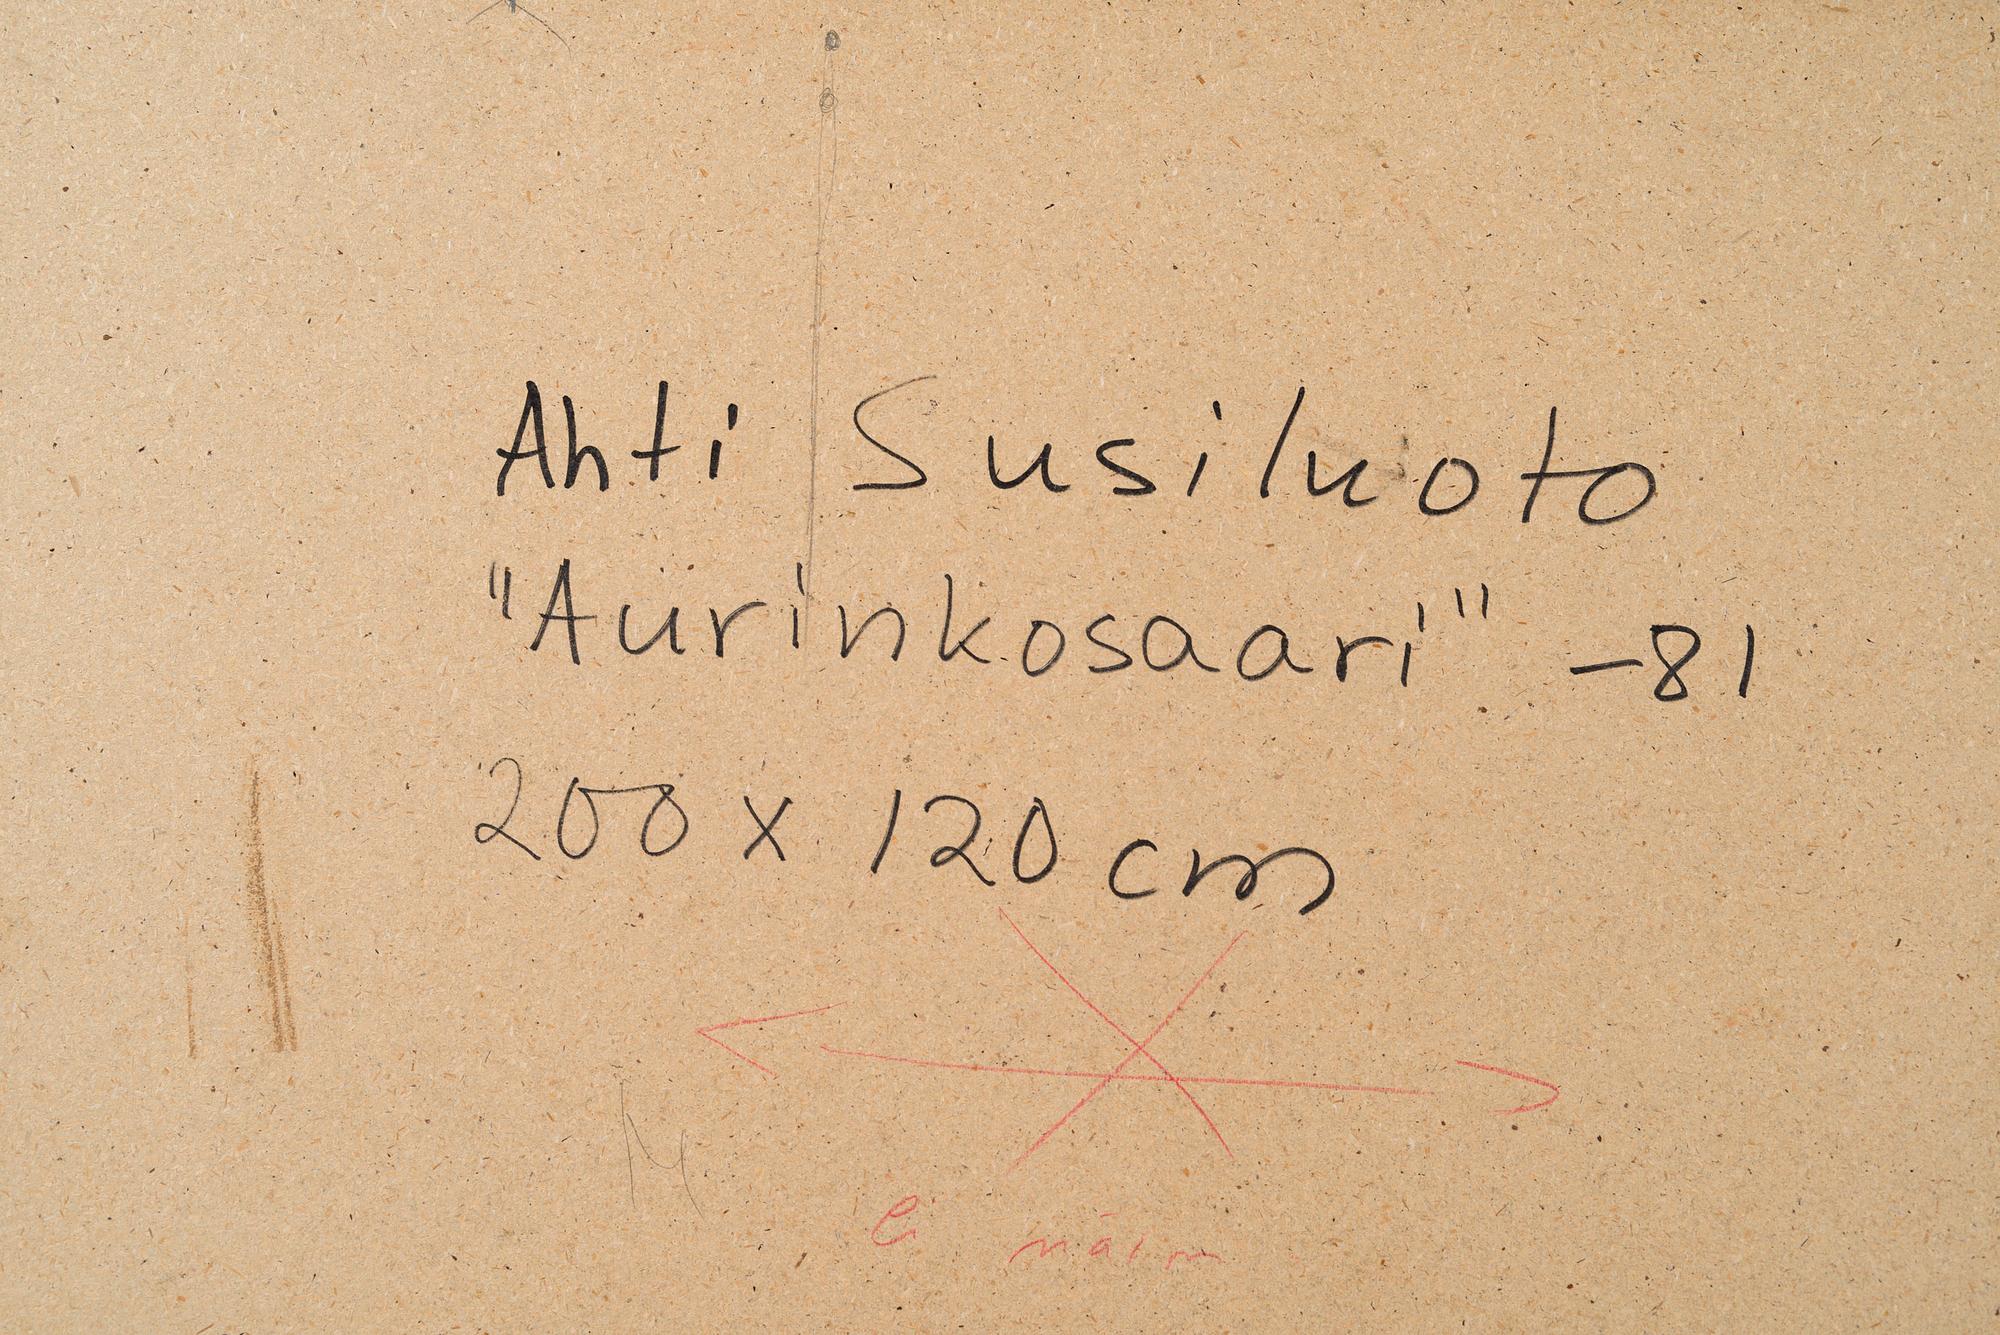 Ahti Susiluoto
"Aurinkosaari" -81
200 x 120 cm
ei näin